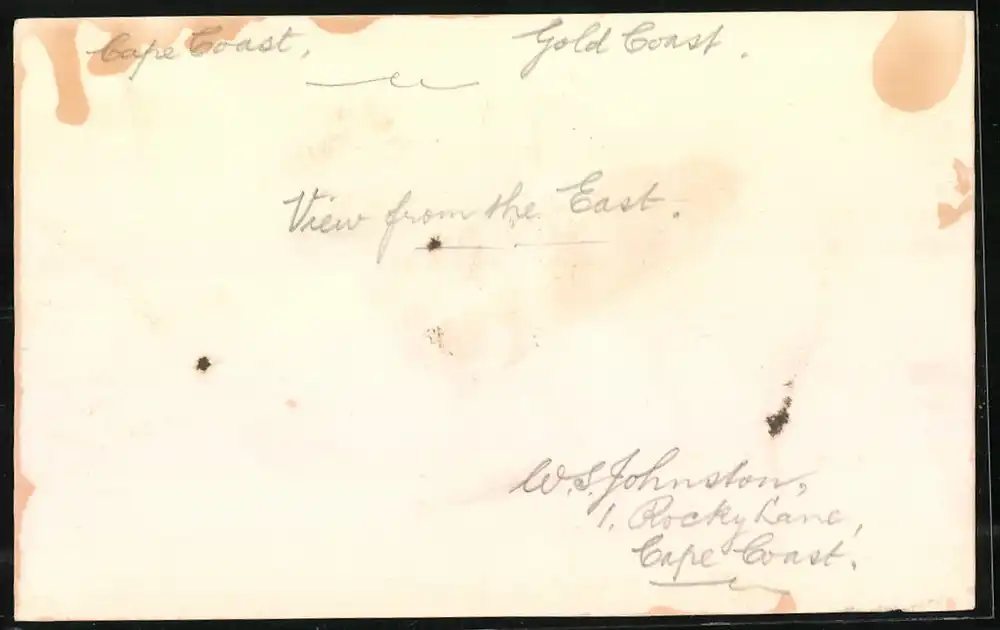 Cape Coast, Gold Coast.
View from the East.
W.S. Johnston,
1, Rocky Lane,
Cape Coast.